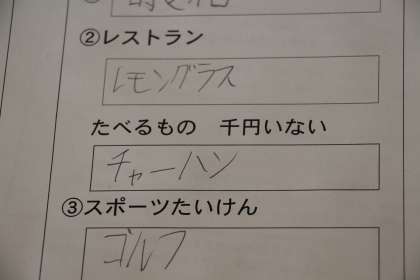 ②レストラン
レモングラス
たべるもの　千円いない
チャーハン
③スポーツたいけん
ゴルフ